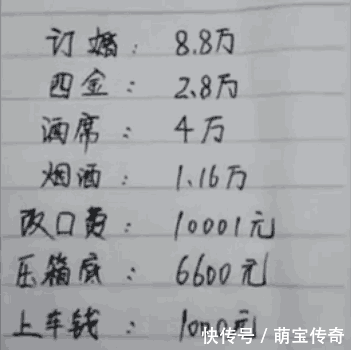 订婚： 8.8万
四金： 2.8万
酒席： 4万
烟酒： 1.16万
改口费： 10001元
压箱底： 6600元
上车钱： 1000元
快传号 / 萌宝传奇